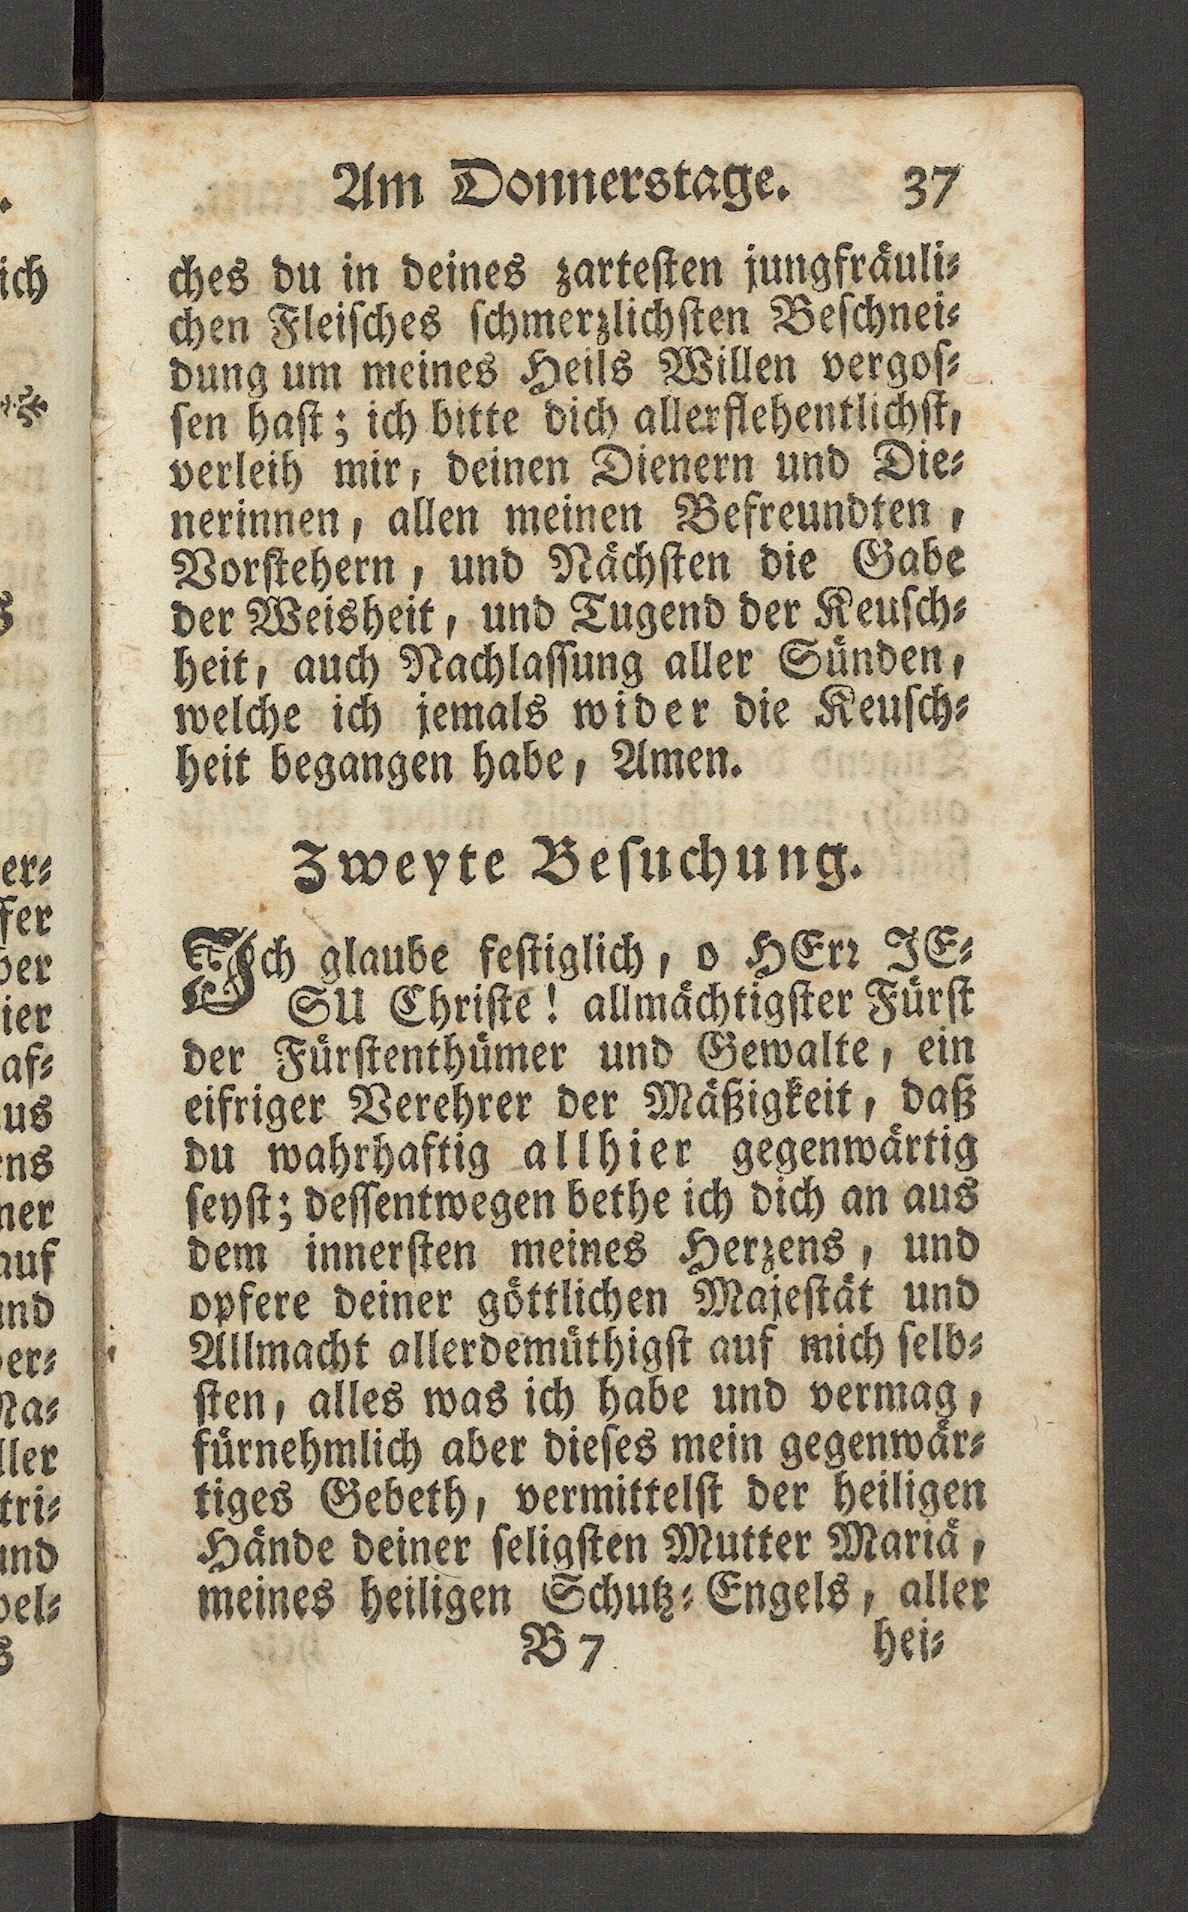 Am Donnerstage. 37
ches du in deines zartesten jungfräuli-
chen Fleisches schmerzlichsten Beschnei-
dung um meines Heils Willen vergos-
sen hast; ich bitte dich allerflehentlichst,
verleih mir, deinen Dienern und Die-
nerinnen, allen meinen Befreundten,
Vorstehern, und Nächsten die Gabe
der Weisheit, und Tugend der Keusch-
heit, auch Nachlassung aller Sünden,
welche ich jemals wider die Keusch-
heit begangen habe, Amen.
Zweyte Besuchung.
Ich glaube festiglich, o HErr JE-
SU Christe! allmächtigster Fürst
der Fürstenthümer und Gewalte, ein
eifriger Verehrer der Mäßigkeit, daß
du wahrhaftig allhier gegenwärtig
seyst; dessentwegen bethe ich dich an aus
dem innersten meines Herzens, und
opfere deiner göttlichen Majestät und
Allmacht allerdemüthigst auf mich selb-
sten, alles was ich habe und vermag,
fürnehmlich aber dieses mein gegenwär-
tiges Gebeth, vermittelst der heiligen
Hände deiner seligsten Mutter Mariä,
meines heiligen Schutz-Engels, aller
B 7 hei-